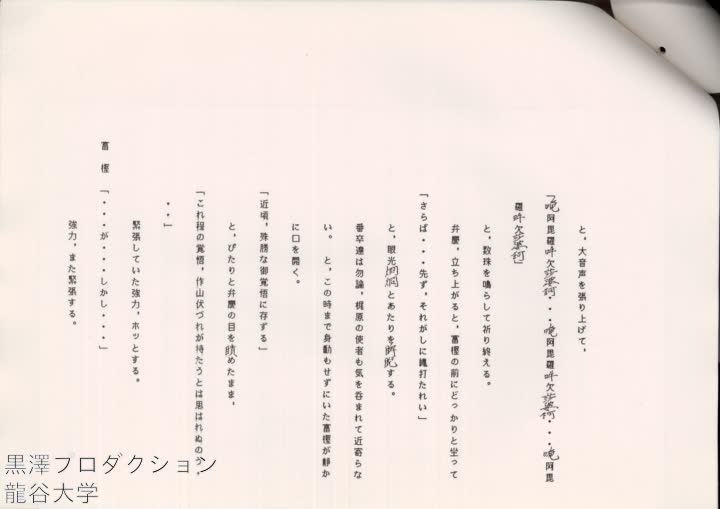 と、大音声を張り上げて、
「唵阿毘羅吽欠莎婆訶・・・唵阿毘羅吽欠莎婆訶・・・唵阿毘
羅吽欠莎婆訶」
と、数珠を鳴らして祈り終える。
弁慶、立ち上がると、富樫の前にどっかりと坐って
「さらば・・・先ず、それがしに縄打たれい」
と、眼光炯炯とあたりを睥睨する。
番卒達は勿論、梶原の使者も気を呑まれて近寄らな
い。と、この時まで身動もせずにいた富樫が静か
に口を開く。
「近頃、殊勝な御覚悟に存ずる」
と、ぴたりと弁慶の目を瞶めたまま、
「これ程の覚悟、作山伏づれが持たうとは思はれぬのう、
・・」
緊張していた強力、ホッとする。
富樫「・・・が・・・しかし・・・」
強力、また緊張する。
黒澤プロダクション
龍谷大学